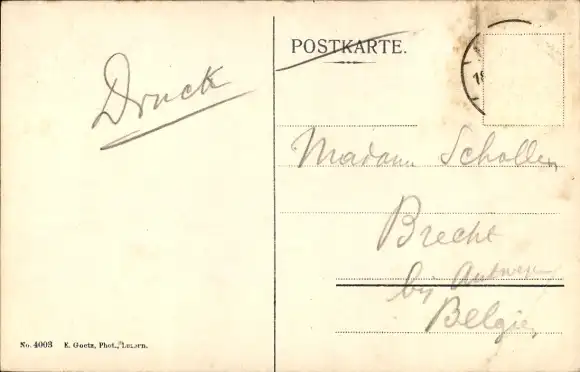 POSTKARTE.
Druck
Madame Schollen
Brecht
bij Antwerpen
Belgie
No. 4003 E. Goetz, Phot., Luzern.